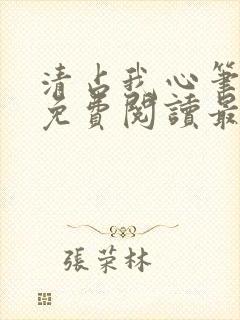 清占我心筆
免費閱讀最
張荣林